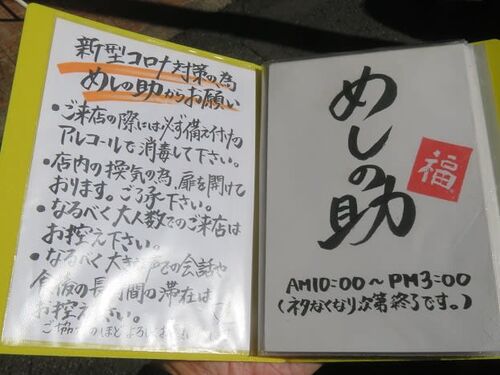 新型コロナ対策の為
めしの助からお願い
・ご来店の際には必ず備え付けの
アルコールで消毒して下さい。
・店内の換気の為、扉を開けて
おります。ご了承下さい。
・なるべく大人数でのご来店は
お控え下さい。
・なるべく大きな声での会話や
食後の長時間の滞在は
お控え下さい。
ご協力のほどよろしくお願い
めしの助
福
AM10:00～PM3:00
(ネタなくなり次第終了です。)